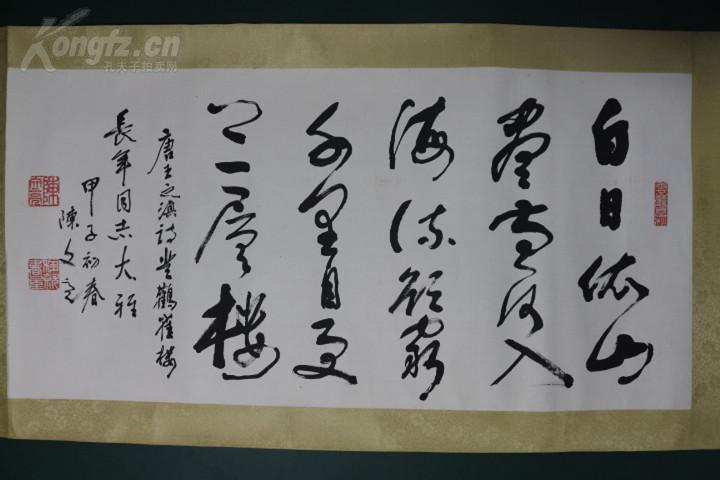 Kongfz.cn
孔夫子拍卖网
白日依山
盡黃河入
海流欲窮
千里目更
上一層樓
唐王之渙詩登鸛雀樓
長年同志大雅
甲子初春
陳文